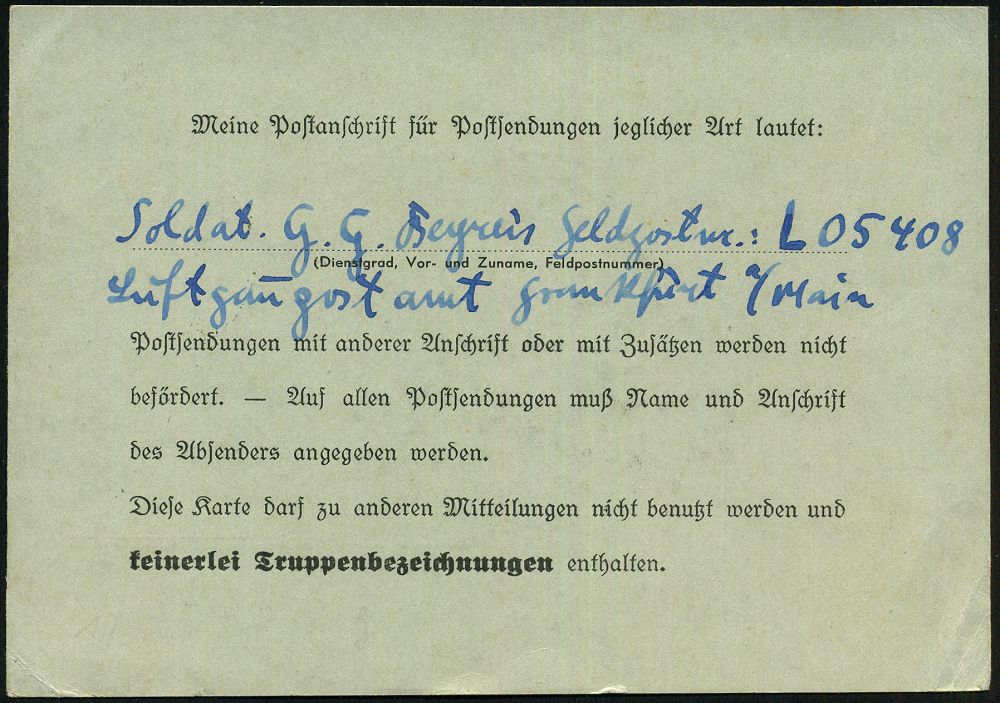 Meine Postanschrift für Postsendungen jeglicher Art lautet:
Soldat. G. G. Beyreis Feldpostnr.: L 05408
(Dienstgrad, Vor- und Zuname, Feldpostnummer)
Luftgaupostamt Frankfurt a/Main
Postsendungen mit anderer Anschrift oder mit Zusätzen werden nicht
befördert. — Auf allen Postsendungen muß Name und Anschrift
des Absenders angegeben werden.
Diese Karte darf zu anderen Mitteilungen nicht benutzt werden und
keinerlei Truppenbezeichnungen enthalten.